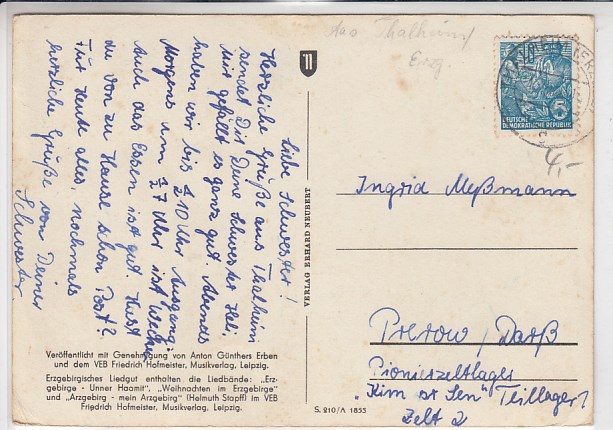 Liebe Schwester!
Herzliche Grüße aus Thalheim
sendet Dir Deine Schwester Heli.
Mir gefällt es ganz gut. Abends
haben wir bis ½10 Uhr Ausgang.
Morgens um ½7 Uhr ist Wecken
Auch das Essen ist gut. Hast
du von zu Hause schon Post?
Für Heute alles, nochmals
herzliche Grüße von Deiner
Schwester
Veröffentlicht mit Genehmigung von Anton Günthers Erben
und dem VEB Friedrich Hofmeister, Musikverlag, Leipzig.
Erzgebirgisches Liedgut enthalten die Liedbände: „Erz-
gebirge - Unner Haamit", „Weihnachten im Erzgebirge"
und „Arzgebirg - mein Arzgebirg" (Helmuth Stapff) im VEB
Friedrich Hofmeister, Musikverlag, Leipzig.
VERLAG ERHARD NEUBERT
S. 210/A 1855
Thalheim/
Erzg.
DEUTSCHE
DEMOKRATISCHE REPUBLIK
5
4,-
Ingrid Meßmann
Prerow/Darß
Pionierzeltlager
„Kim ir Sen" Teillager 1
Zelt 2